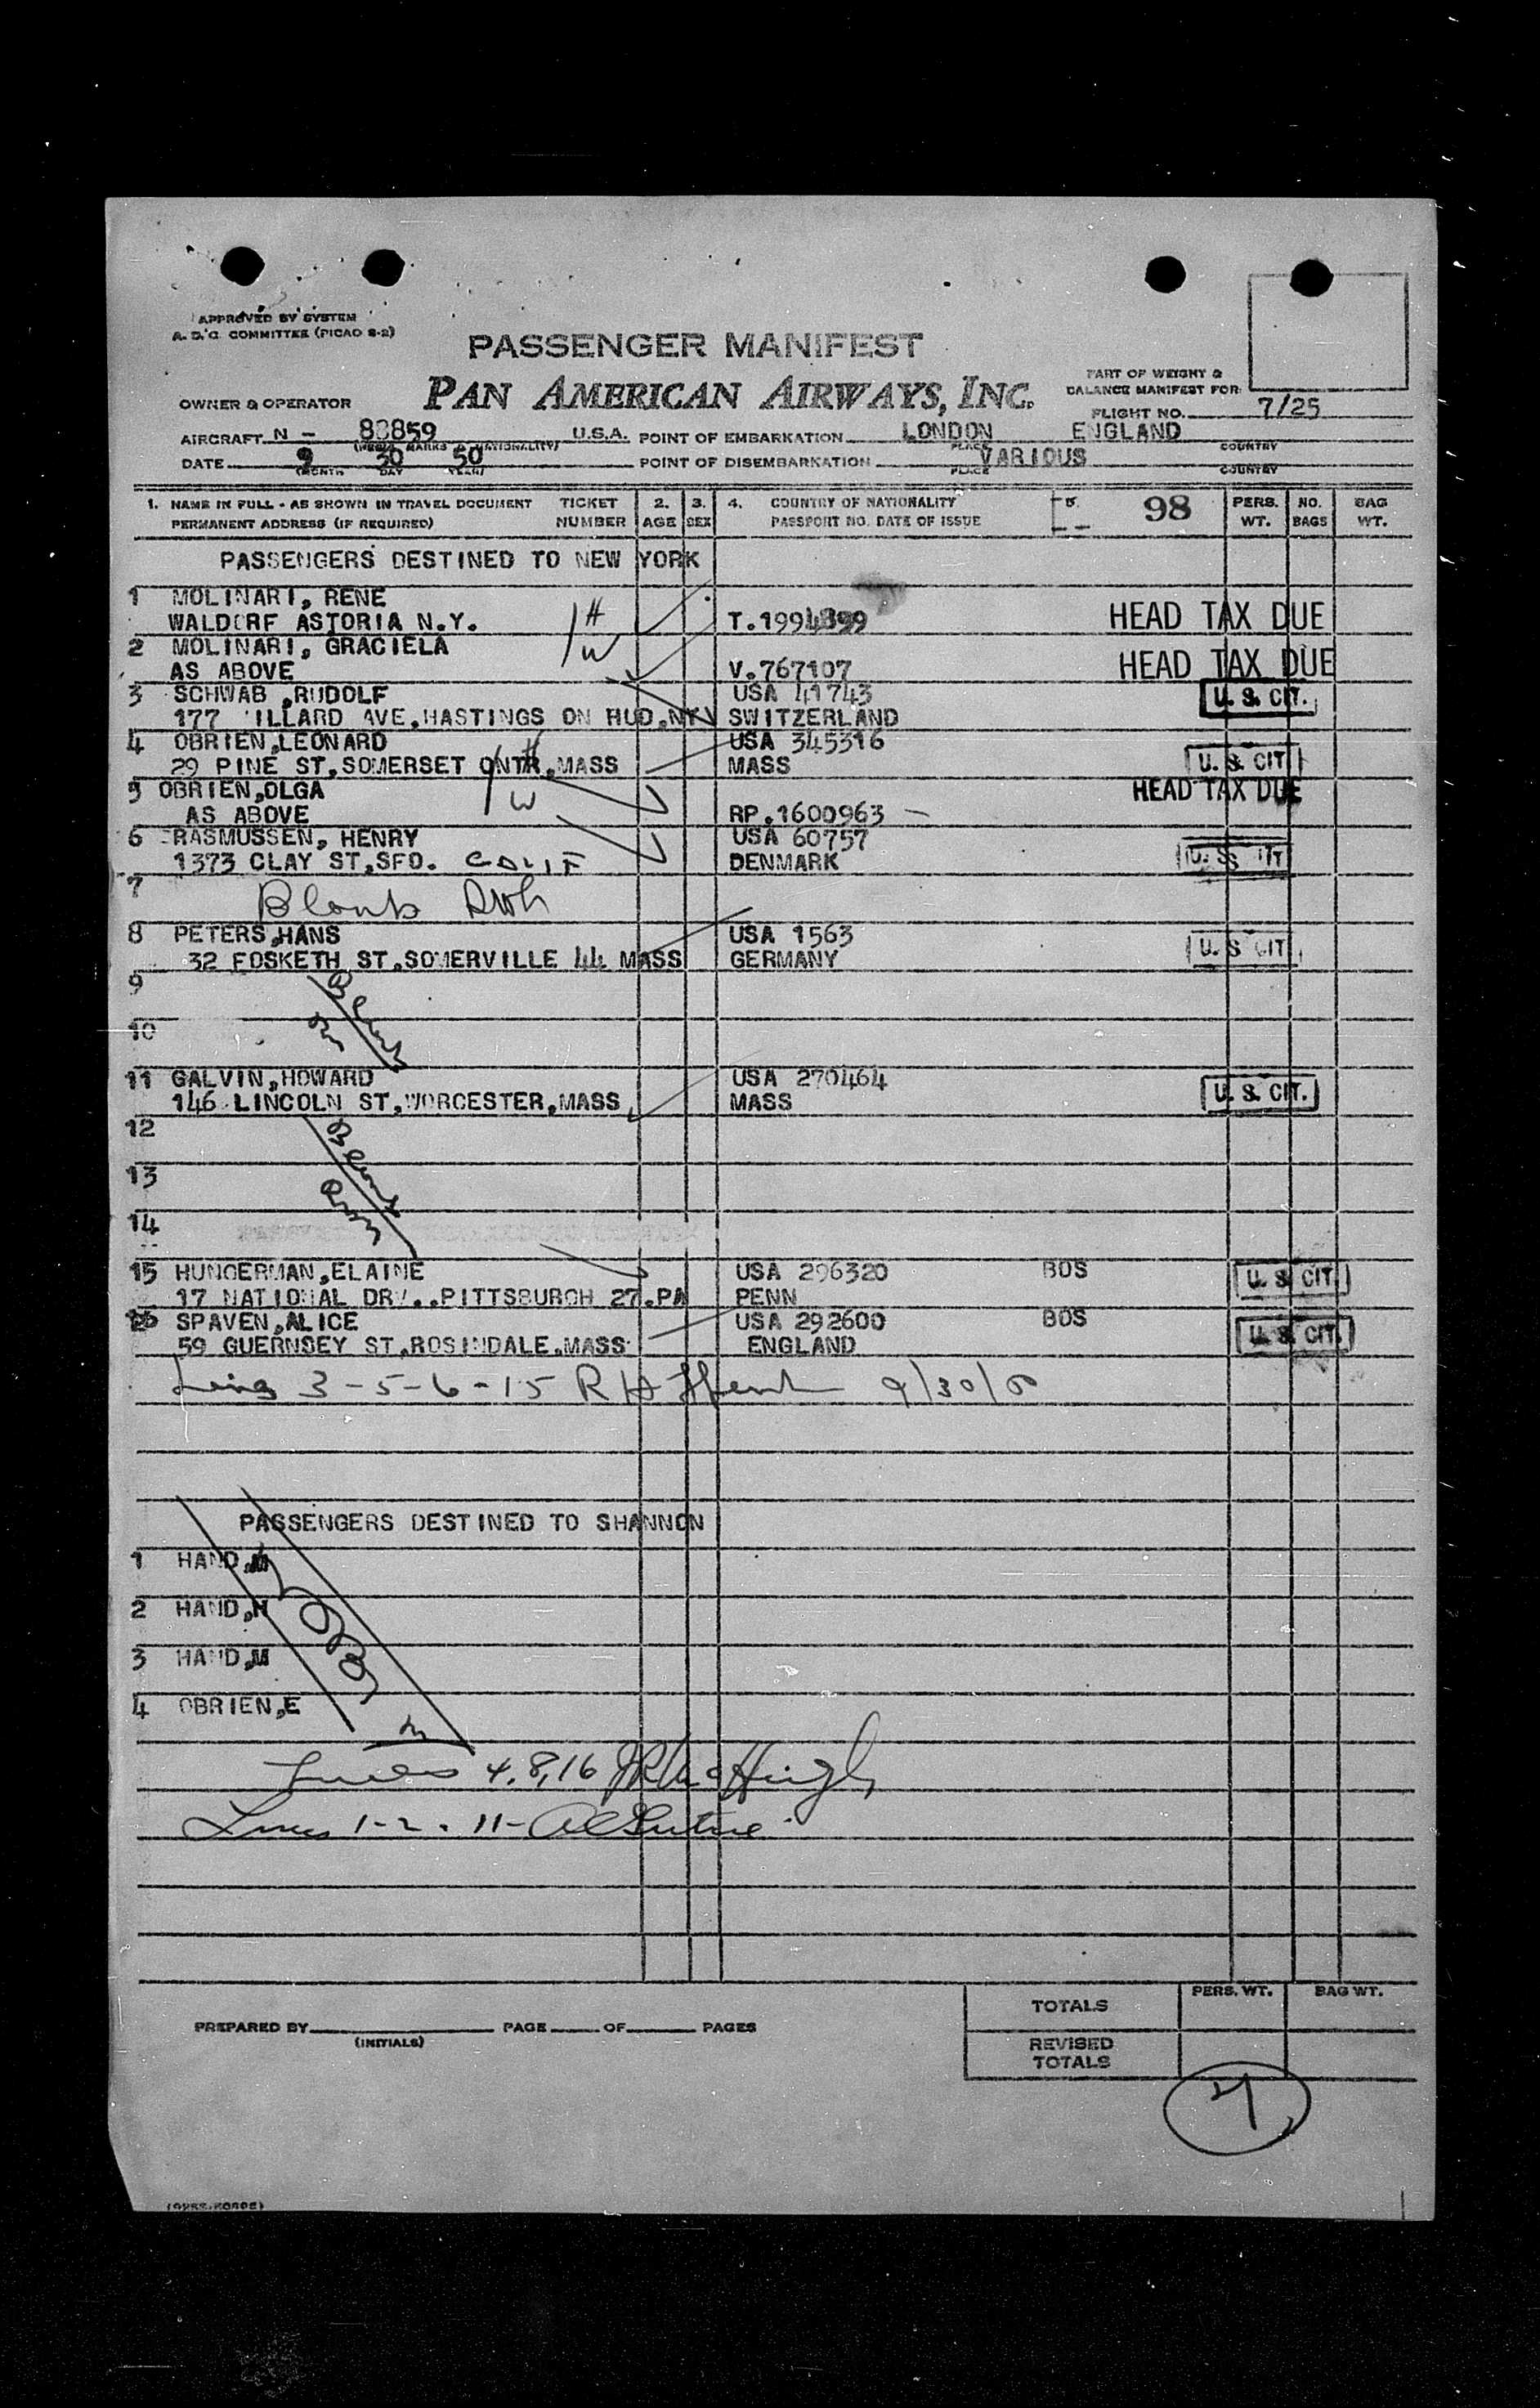 APPROVED BY SYSTEM
A. D. C. COMMITTEE (PICAO S-2)
PASSENGER MANIFEST
PAN AMERICAN AIRWAYS, INC.
PART OF WEIGHT &
BALANCE MANIFEST FOR:
OWNER & OPERATOR
FLIGHT NO. 7/25
AIRCRAFT N - 88859 U.S.A. POINT OF EMBARKATION LONDON ENGLAND
MARKS NATIONALITY) PLACE COUNTRY
DATE 9 30 50 POINT OF DISEMBARKATION VARIOUS
(MONTH DAY YEAR) PLACE COUNTRY
1. NAME IN FULL - AS SHOWN IN TRAVEL DOCUMENT TICKET 2. 3. 4. COUNTRY OF NATIONALITY 5. 98 PERS. NO. BAG
PERMANENT ADDRESS (IF REQUIRED) NUMBER AGE SEX PASSPORT NO. DATE OF ISSUE WT. BAGS WT.
PASSENGERS DESTINED TO NEW YORK
1 MOLINARI, RENE H
WALDORF ASTORIA N.Y. T.1994899 HEAD TAX DUE
2 MOLINARI, GRACIELA W
AS ABOVE V.767107 HEAD TAX DUE
3 SCHWAB ,RUDOLF USA 41743 U. S. CIT.
177 ILLARD AVE,HASTINGS ON HUD,NY SWITZERLAND
4 OBRIEN,LEONARD H USA 345316
29 PINE ST,SOMERSET MASS MASS U. S. CIT
5 OBRIEN,OLGA W HEAD TAX DUE
AS ABOVE RP.1600963
6 RASMUSSEN, HENRY USA 60757
1373 CLAY ST,SFO. CALIF DENMARK U. S. CIT
7 Blank
8 PETERS,HANS USA 1563
32 FOSKETH ST,SOMERVILLE 44 MASS GERMANY U. S CIT
9 Blank
10
11 GALVIN,HOWARD USA 270464
146 LINCOLN ST,WORCESTER,MASS MASS U. S. CIT.
12 Blank
13
14
15 HUNGERMAN,ELAINE USA 296320 BOS U. S. CIT.
17 NATIONAL DRV..PITTSBURGH 27.PA PENN
16 SPAVEN,ALICE USA 292600 BOS U. S. CIT.
59 GUERNSEY ST,ROSINDALE,MASS ENGLAND
Lines 3-5-6-15 9/30/50
PASSENGERS DESTINED TO SHANNON
1 HAND,M
2 HAND,H
3 HAND,M
4 OBRIEN,E
Lines 4,8,16
Lines 1-2-11-
TOTALS PERS. WT. BAG WT.
PREPARED BY PAGE OF PAGES
(INITIALS)
REVISED
TOTALS